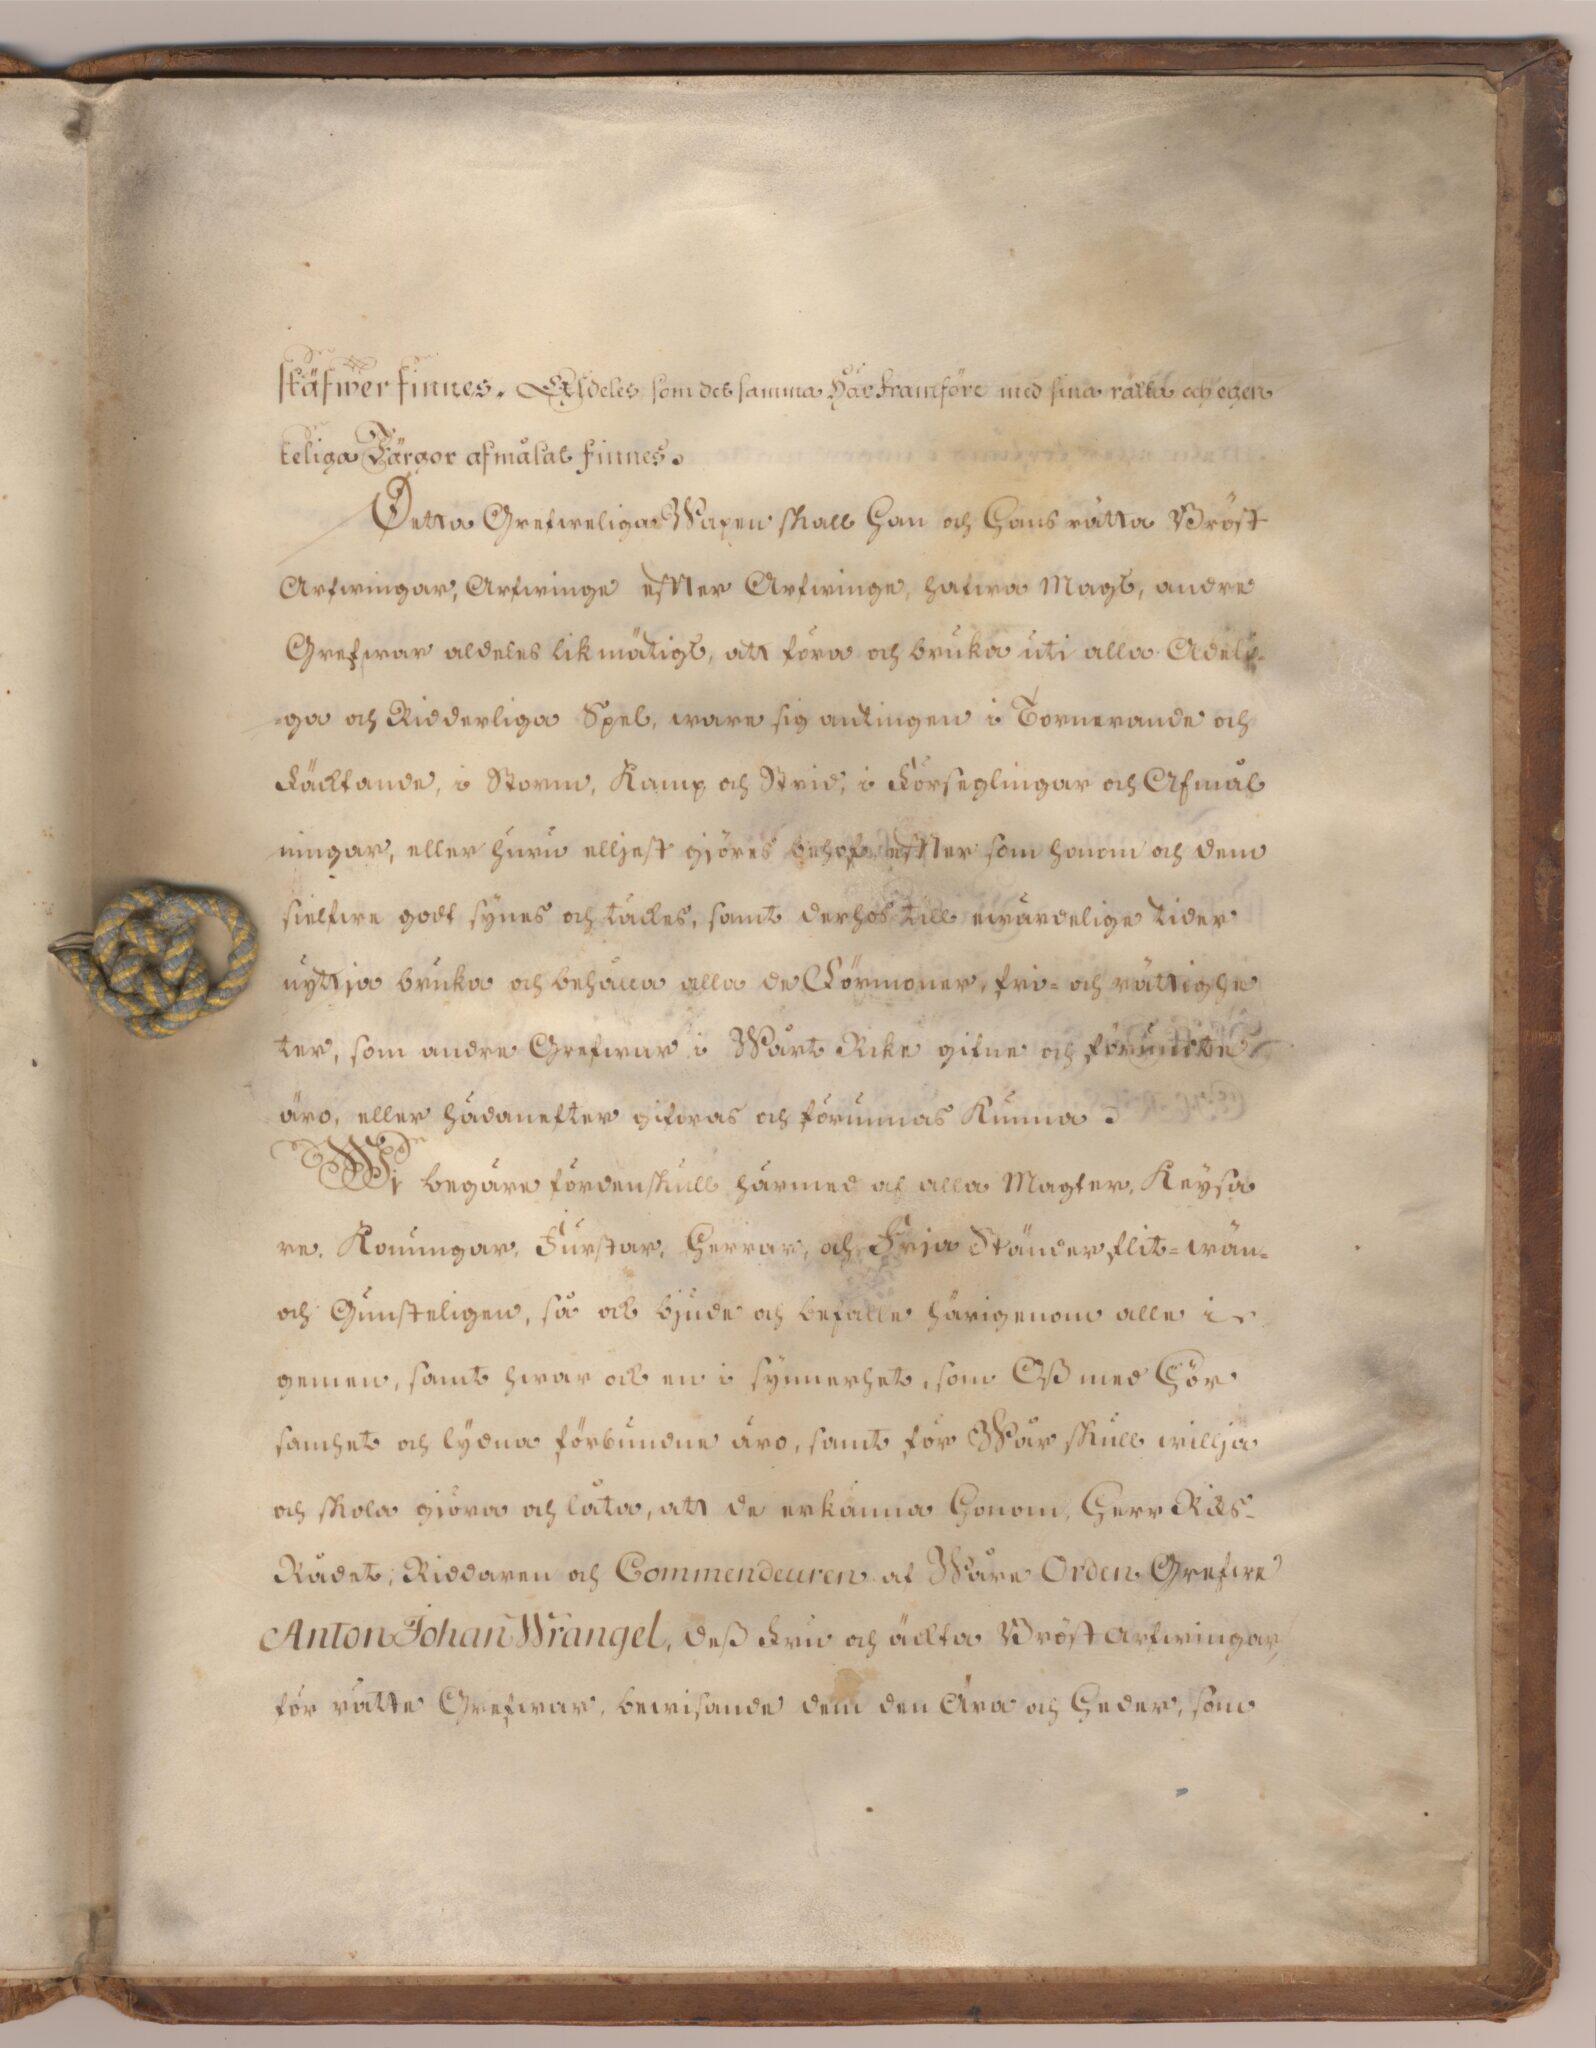 skäfwer finnes. Aldeles som det samma Här framföre med sina rätta och egen
teliga Färgor afmålat finnes.
Detta Grefweliga Wapen skall Han och Hans rätta Bröst
Arfwingar, Arfwinge efter Arfwinge, hafwa Magt, andre
Grefwar aldeles likmätigt, att föra och bruka uti alla Adeli-
-ga och Ridderliga Spel, ware sig antingen i Tornerande och
Fäcktande, i Storm, Kamp och Strid, i Förseglingar och Afmål
ningar, eller huru elljest giöres behof, efter som honom och dem
sielfwe godt synes och täckes, samt derhos till ewärdelige tider
nyttja bruka och behålla alla de Förmoner, fri- och rättighe
ter, som andre Grefwar i Wårt Rike gifne och förundte
äro, eller hädanefter gifwas och förunnas kunna.
Wi begäre fördenskull härmed af alla Magter, Keysa
re, Konungar, Furstar, Herrar, och Fria Ständer flit- wän-
och Gunsteligen, så ock bjude och befalle härigenom alle i
gemen, samt hwar ock en i synnerhet, som Oß med Hör
samhet och lydna förbundne äro, samt för Wår skull willja
och skola giöra och låta, att de erkänna Honom, Herr Riks-
Rådet, Riddaren och Commendeuren af Wåre Orden Grefwe
Anton Johan Wrangel, deß Fru och äckta Bröstarfwingar,
för rätte Grefwar, bewisande dem den Ära och Heder, som